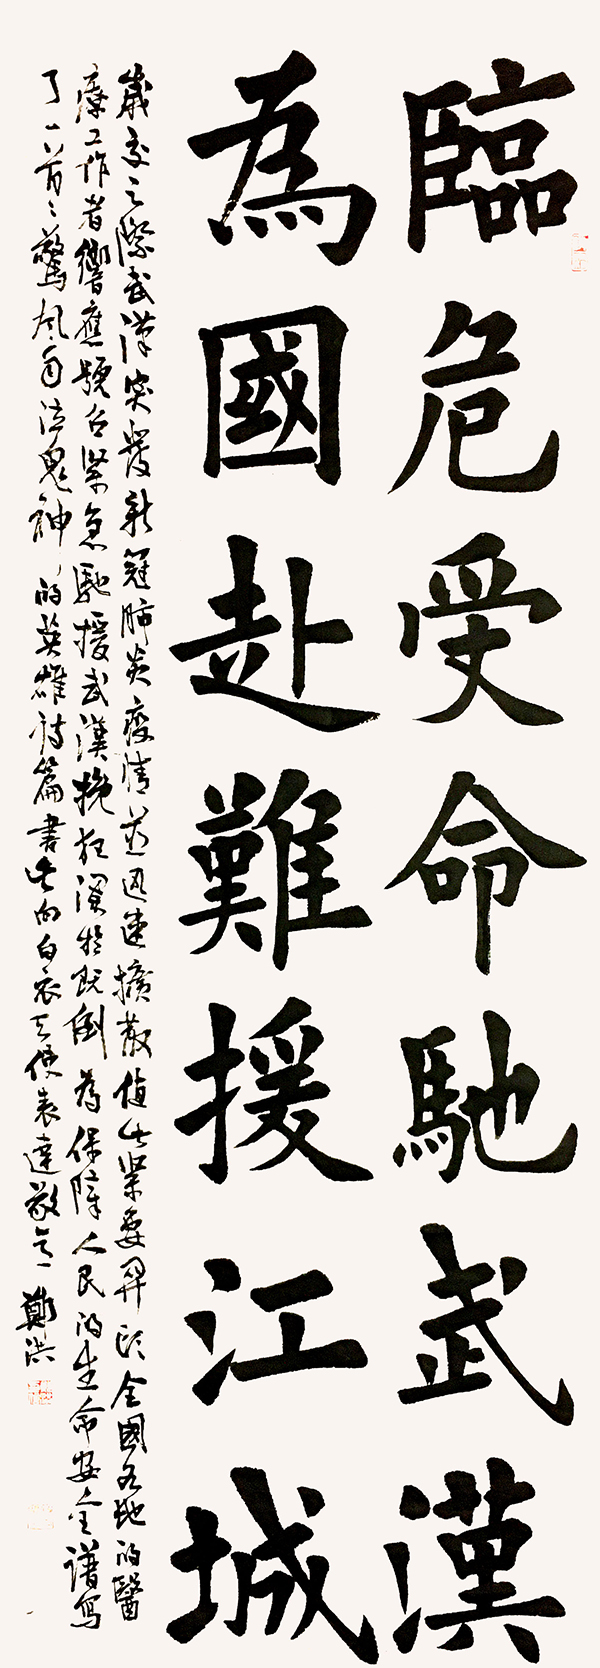 臨危受命馳武漢
為國赴難援江城
歲交之際武漢突發新冠肺炎疫情並迅速擴散值此緊要關頭全國各地的醫
療工作者響應號召緊急馳援武漢挽狂瀾於既倒為保障人民的生命安全譜寫
了一首首驚風雨泣鬼神的英雄詩篇書此向白衣天使表達敬意鄭洪